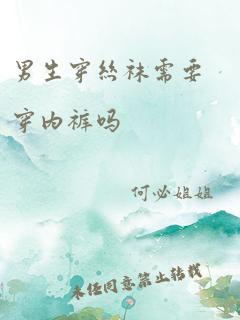 男生穿丝袜需要
穿内裤吗
何必姐姐
未经同意禁止转载